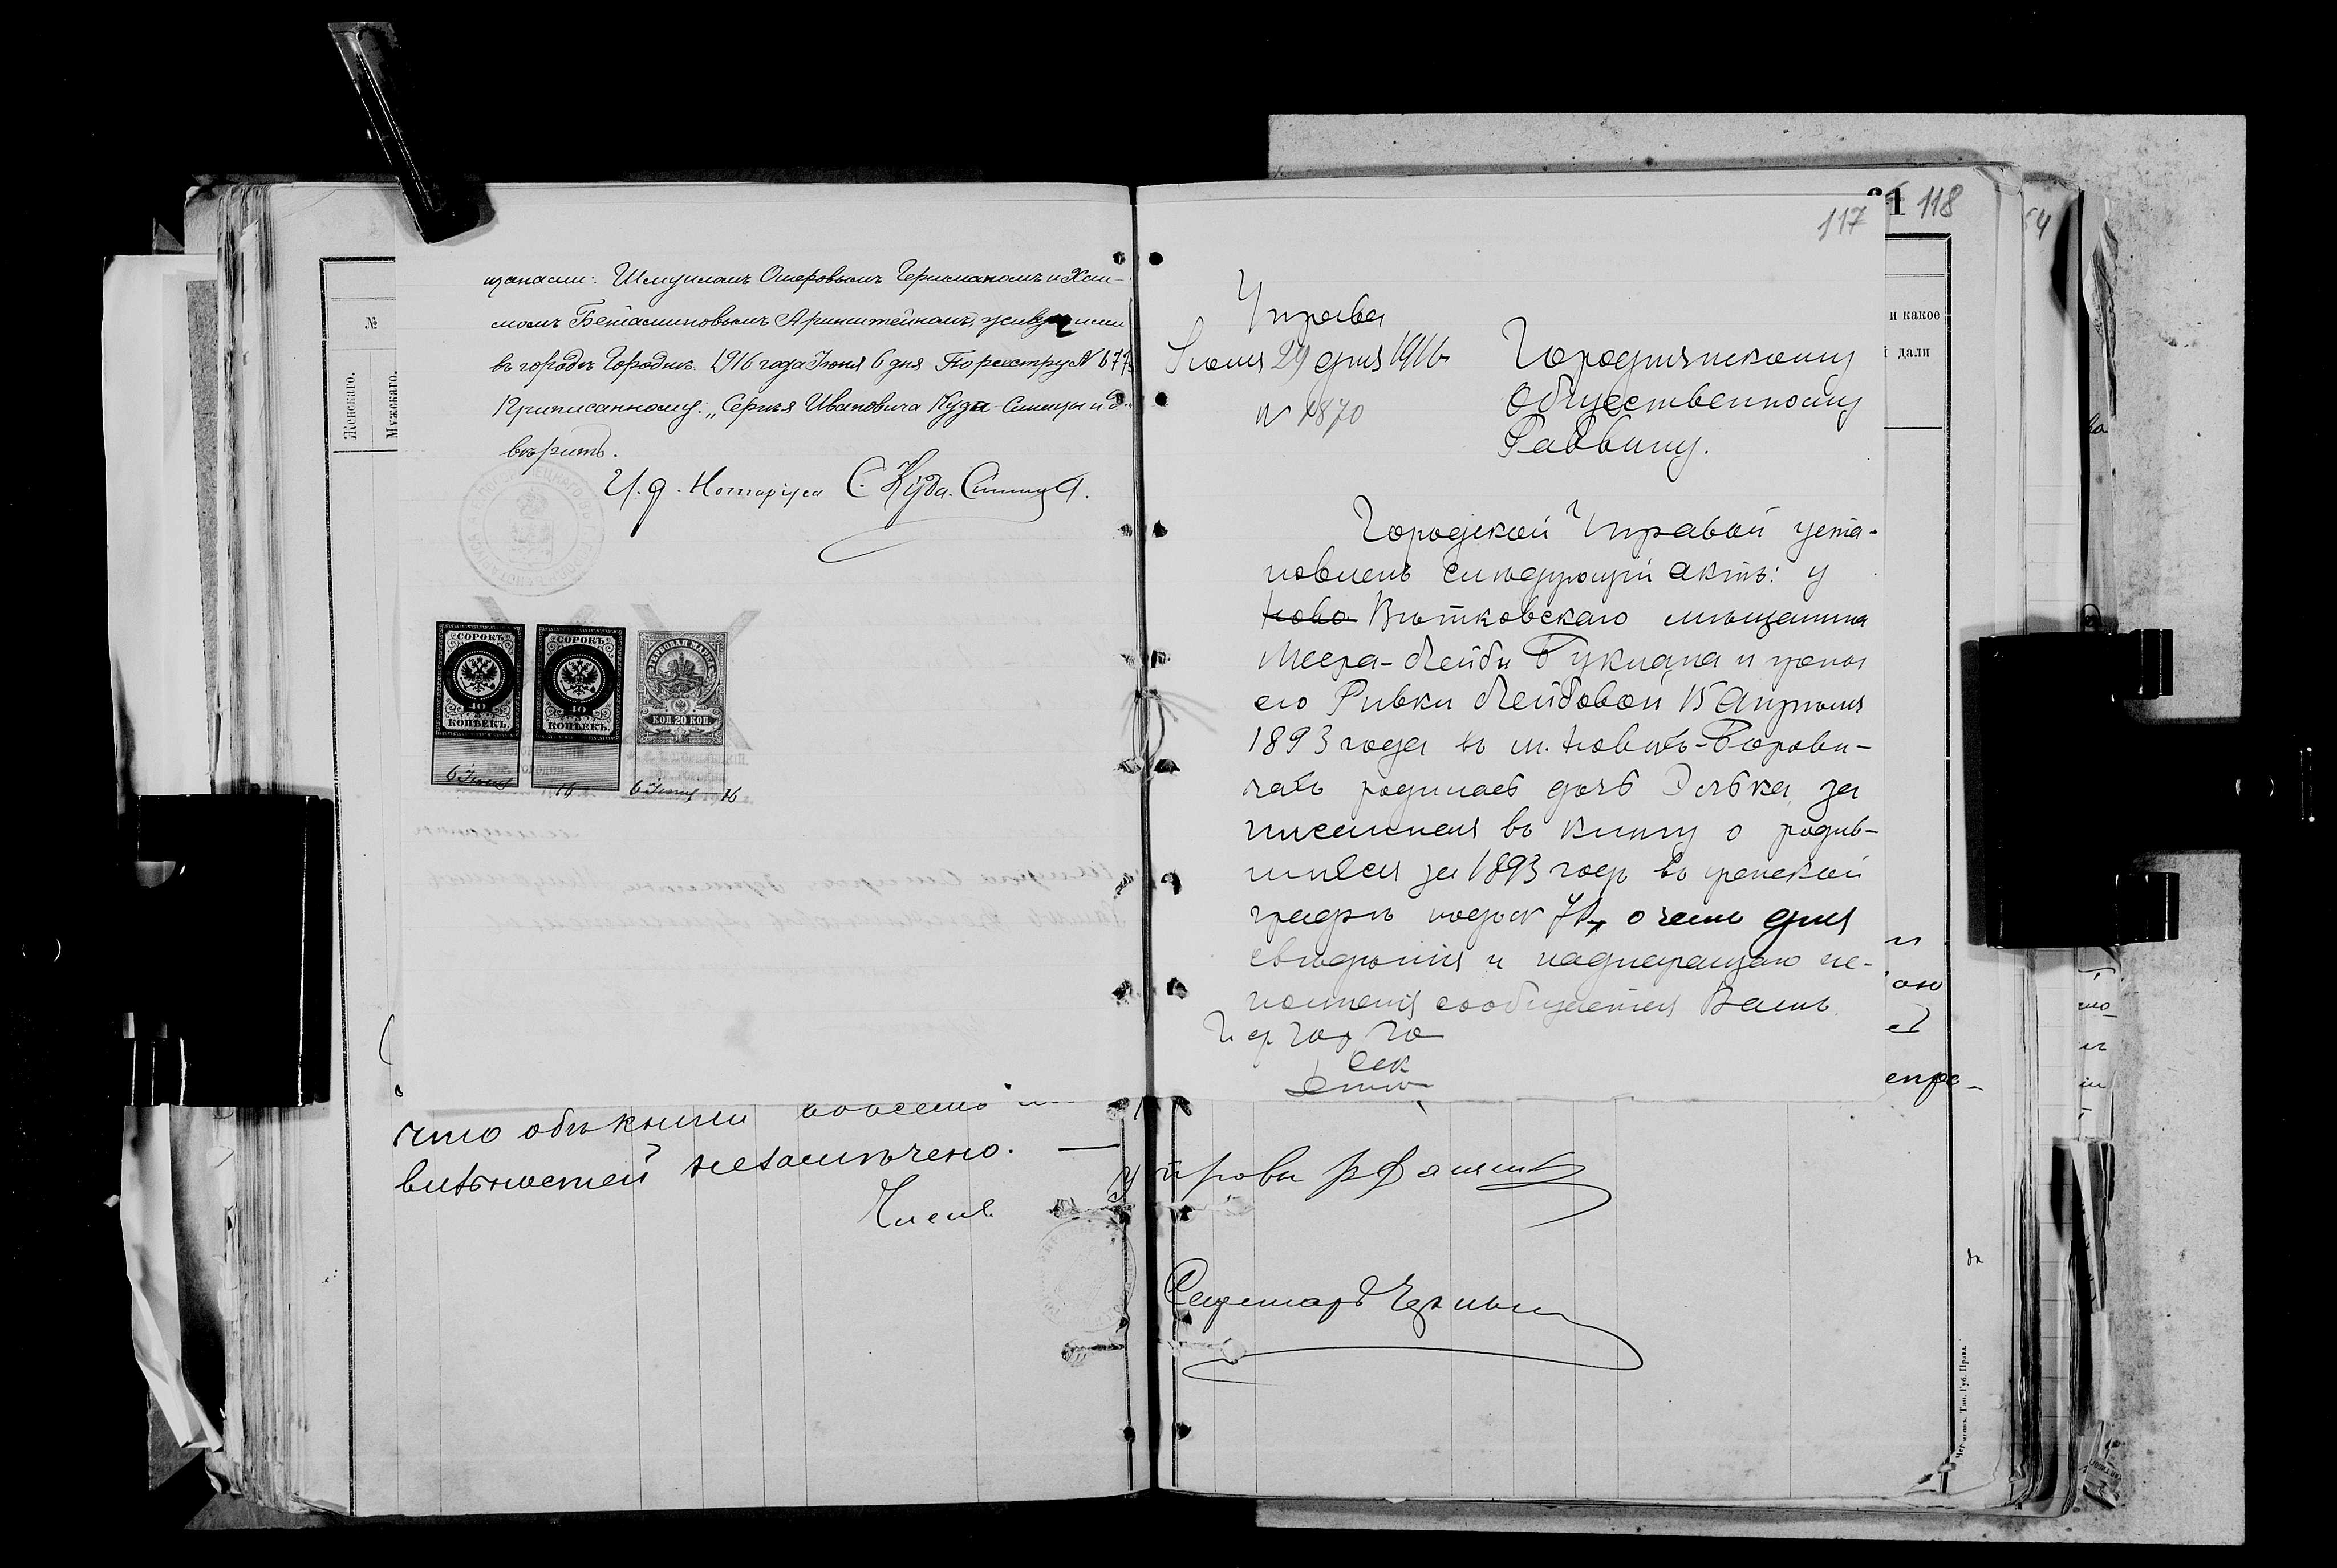 щанами: Шмуиломъ Ошеровымъ Герцманомъ и Хаи-
момъ Беніаминовымъ Аринштейномъ, живущими
въ городѣ Городнѣ. 1916 года Іюня 6 дня По реестру № 677
Приписанному: „Сергѣя Ивановича Куда-Синицы и д.
вѣритъ.
И. д. Нотаріуса С. Куда-Синица.
СОРОКЪ
40
КОПѢЕКЪ
СОРОКЪ
40
КОПѢЕКЪ
ГЕРБОВАЯ МАРКА
КОП. 20 КОП.
6 Іюня 16
6 Іюня 16
№
Женскаго.
Мужескаго.
что обѣ книги
не замѣчено.
117
1 118
54
и какое
дали
Управа
Іюня 29 дня 1916
№ 1870
Городнянскому
Общественному
Раввину.
Городской Управой уста-
новленъ слѣдующій актъ: у
Ново Вѣтковскаго мѣщанина
Меера-Лейбы Букмана и жены
его Ривки Лейбовой 15 Апрѣля
1893 года въ м. Новыхъ-Борови-
чахъ родилась дочь Элька, за
писанная въ книгу о родив-
шихся за 1893 годъ въ женской
графѣ подъ № о чемъ для
свѣдѣнія и надлежащаго ис-
полненія сообщается Вамъ.
Сек
Членъ управы
Секретарь
Черниговъ. Тип. Губ. Правл.